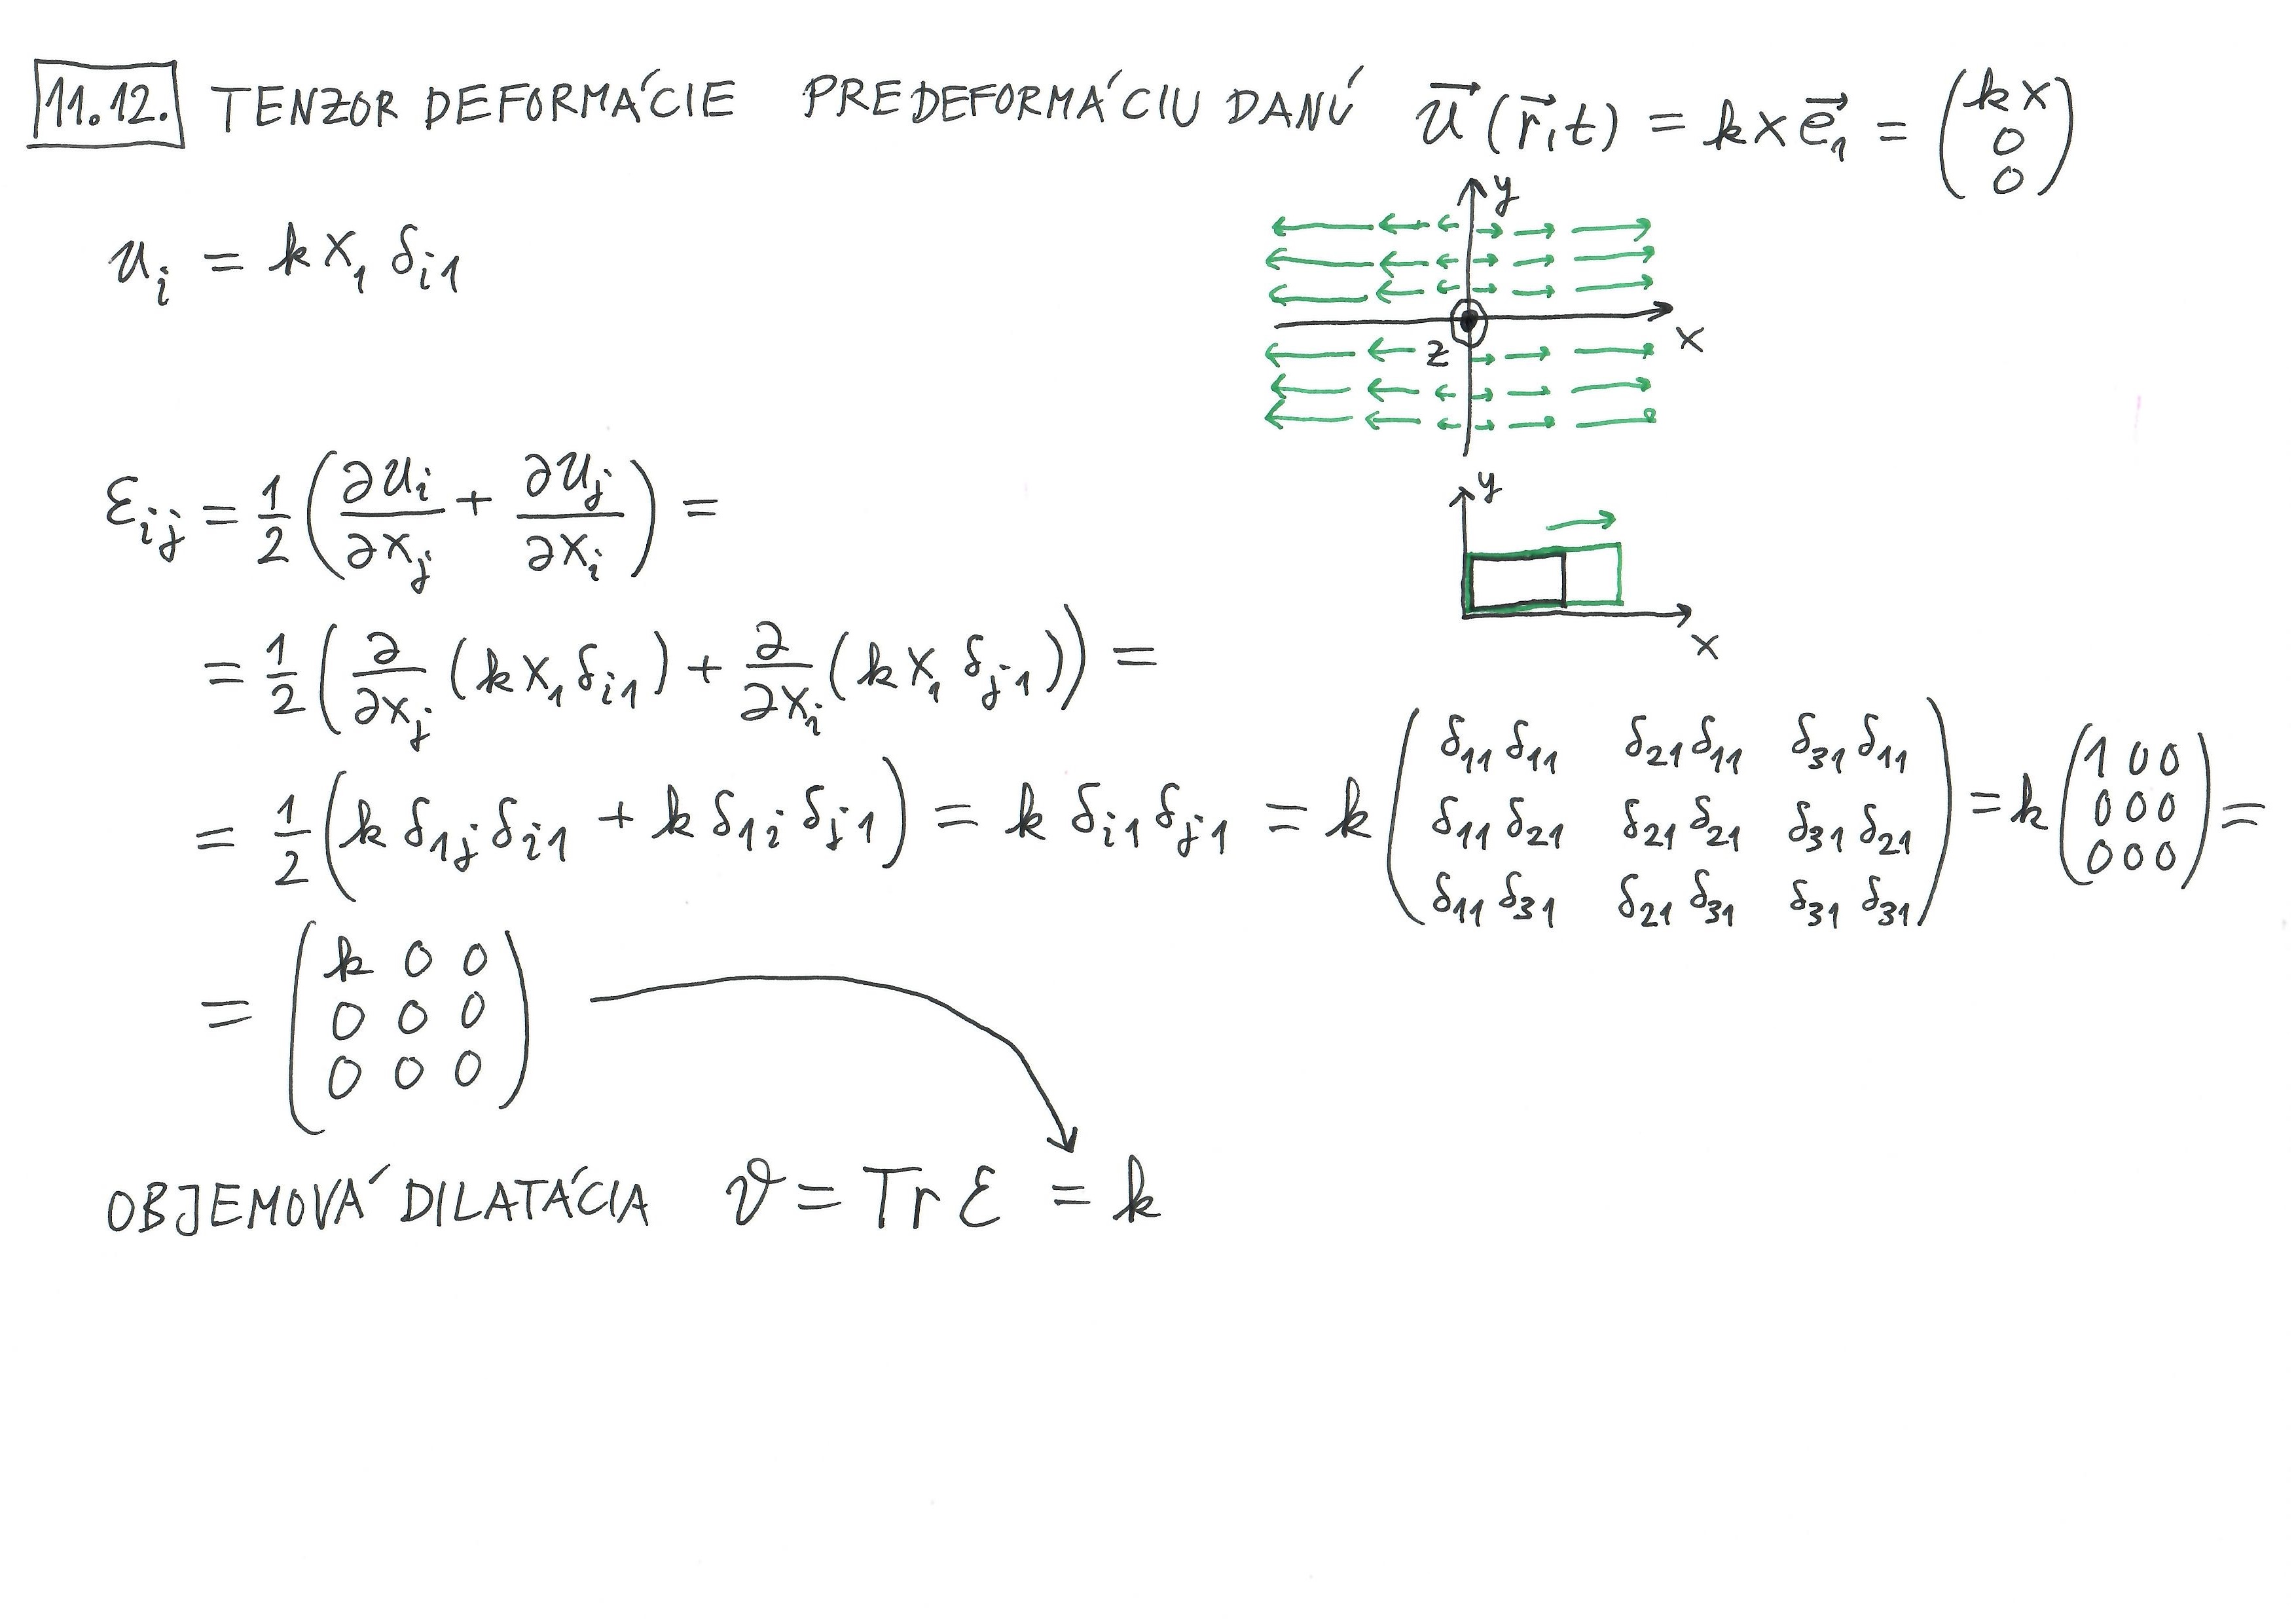 11.12. TENZOR DEFORMÁCIE PRE DEFORMÁCIU DANÚ $\vec{u}(\vec{r},t) = kx\vec{e}_1 = \begin{pmatrix} kx \\ 0 \\ 0 \end{pmatrix}$
y
$u_i = kx_1 \delta_{i1}$
x
z
y
$\varepsilon_{ij} = \frac{1}{2}\left(\frac{\partial u_i}{\partial x_j} + \frac{\partial u_j}{\partial x_i}\right) =$
x
$= \frac{1}{2}\left(\frac{\partial}{\partial x_j}(kx_1\delta_{i1}) + \frac{\partial}{\partial x_i}(kx_1\delta_{j1})\right) =$
$= \frac{1}{2}\left(k\delta_{1j}\delta_{i1} + k\delta_{1i}\delta_{j1}\right) = k\delta_{i1}\delta_{j1} = k\begin{pmatrix} \delta_{11}\delta_{11} & \delta_{21}\delta_{11} & \delta_{31}\delta_{11} \\ \delta_{11}\delta_{21} & \delta_{21}\delta_{21} & \delta_{31}\delta_{21} \\ \delta_{11}\delta_{31} & \delta_{21}\delta_{31} & \delta_{31}\delta_{31} \end{pmatrix} = k\begin{pmatrix} 1 & 0 & 0 \\ 0 & 0 & 0 \\ 0 & 0 & 0 \end{pmatrix} =$
$= \begin{pmatrix} k & 0 & 0 \\ 0 & 0 & 0 \\ 0 & 0 & 0 \end{pmatrix}$
OBJEMOVÁ DILATÁCIA $\vartheta = Tr\,\varepsilon = k$